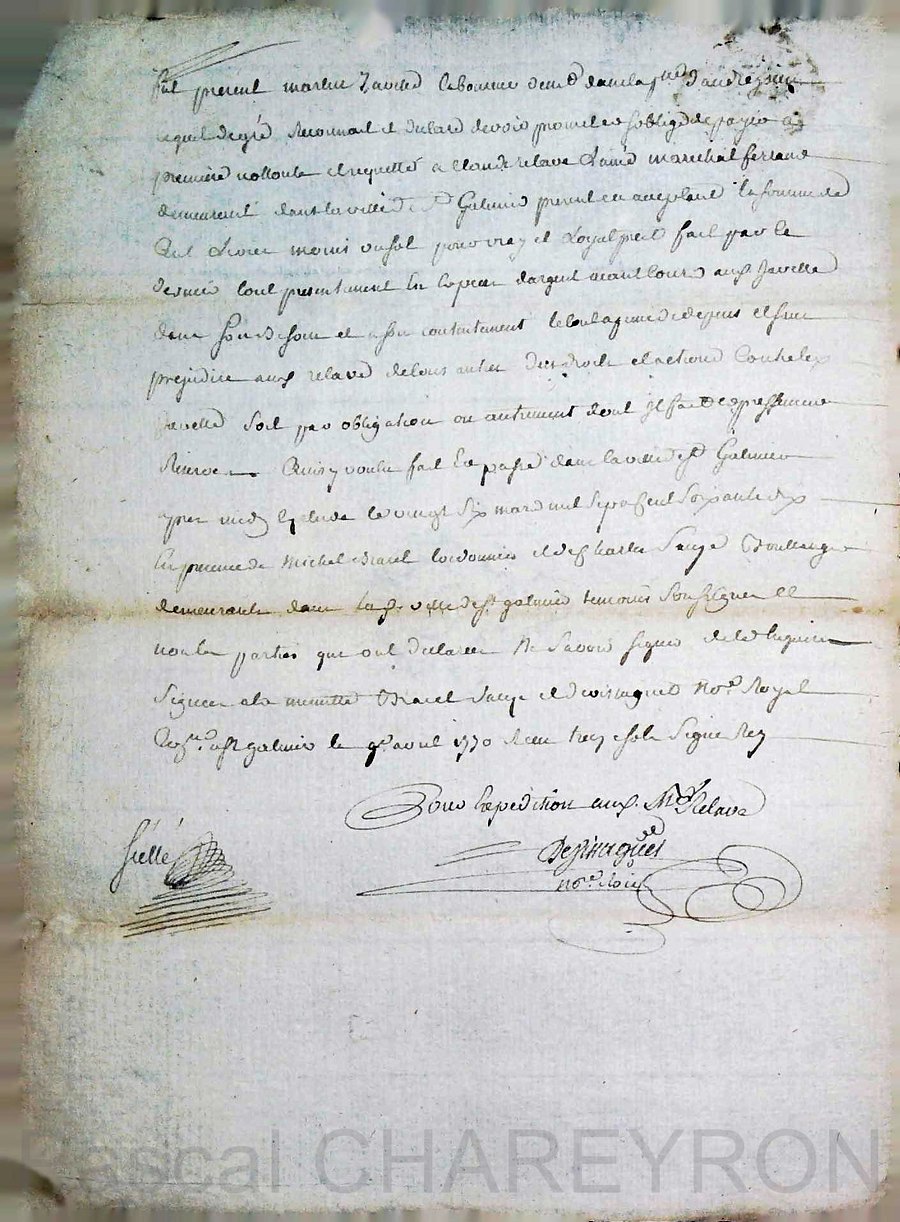 fut present martin Javelle laboureur demt dans la pse d'andrezieu
lequel de gré reconnait et declare devoir promet et s'oblige de payer a
premiere nottoute et requette a Claude relave Laine marechal ferrand
demeurant dans la ville de St Galmier present et acceptant la somme de
Cent Livres moins un sol pour vray et Loyal pret fait par le
dernier tout presentement En Especes d'argent ayant Cours aud Javelle
dans son Besoin et a son contentement le tout a ce que dessus et sans
prejudice aud relave de tous autres Ses droits et actions Contre led
Javelle soit par obligation ou autrement dont il fait Expressement
Reserve Ainsy voulu fait Et passé dans la ville de St Galmier
apres midy Etude le vingt six mars mil sept Cent soixante dix
En presence de Michel Bravel Cordonnier et de Charles Sauze Boulanger
demeurants dans lad ville de st galmier temoins Soussignes Et
non les parties qui ont declaré Ne Savoir signer de ce Enquis
Signes a la minutte Bravel Sauze et Desvisagues Nore Royal
Coné a St galmier le 9e avril 1770 Recu treze sols Signé Rey
Pour Expedition aud. Me Relave
Scellé
Desvisagues
nore Roial
Pascal CHAREYRON